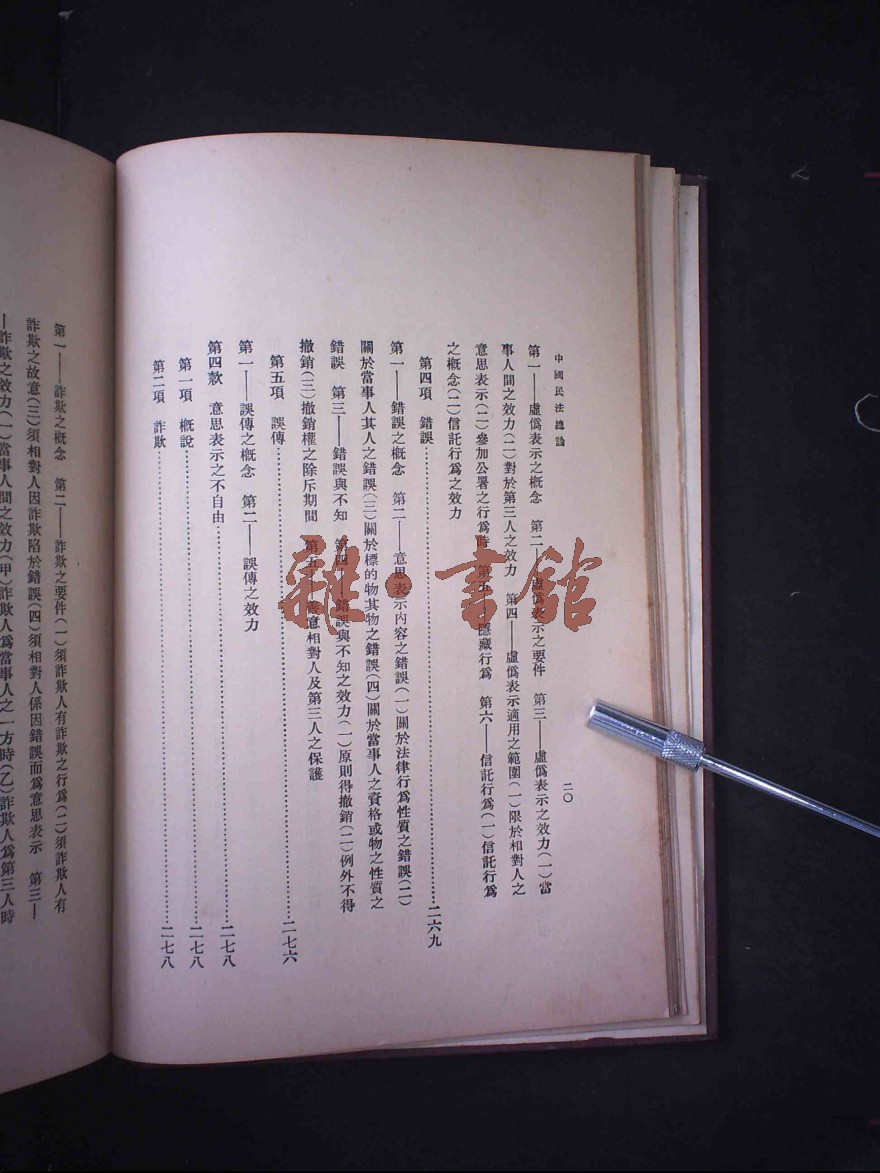 中國民法總論
二〇
第一——虛僞表示之概念　第二——虛僞表示之要件　第三——虛僞表示之效力(一)當
事人間之效力(二)對於第三人之效力　第四——虛僞表示適用之範圍(一)限於相對人之
意思表示(二)參加公署之行爲時　第五——隱藏行爲　第六——信託行爲(一)信託行爲
之概念(二)信託行爲之效力
第四項　錯誤……二六九
第一——錯誤之概念　第二——意思表示內容之錯誤(一)關於法律行爲性質之錯誤(二)
關於當事人其人之錯誤(三)關於標的物其物之錯誤(四)關於當事人之資格或物之性質之
錯誤　第三——錯誤與不知　第四——錯誤與不知之效力(一)原則得撤銷(二)例外不得
撤銷(三)撤銷權之除斥期間　第五——善意相對人及第三人之保護
第五項　誤傳……二七六
第一——誤傳之概念　第二——誤傳之效力
第四款　意思表示之不自由……二七八
第一項　概說……二七八
第二項　詐欺……二七八
第一——詐欺之概念　第二——詐欺之要件(一)須詐欺人有詐欺之行爲(二)須詐欺人有
詐欺之故意(三)須相對人因詐欺陷於錯誤(四)須相對人係因錯誤而爲意思表示　第三—
—詐欺之效力(一)當事人間之效力(甲)詐欺人爲當事人之一方時(乙)詐欺人爲第三人時
雜·書館